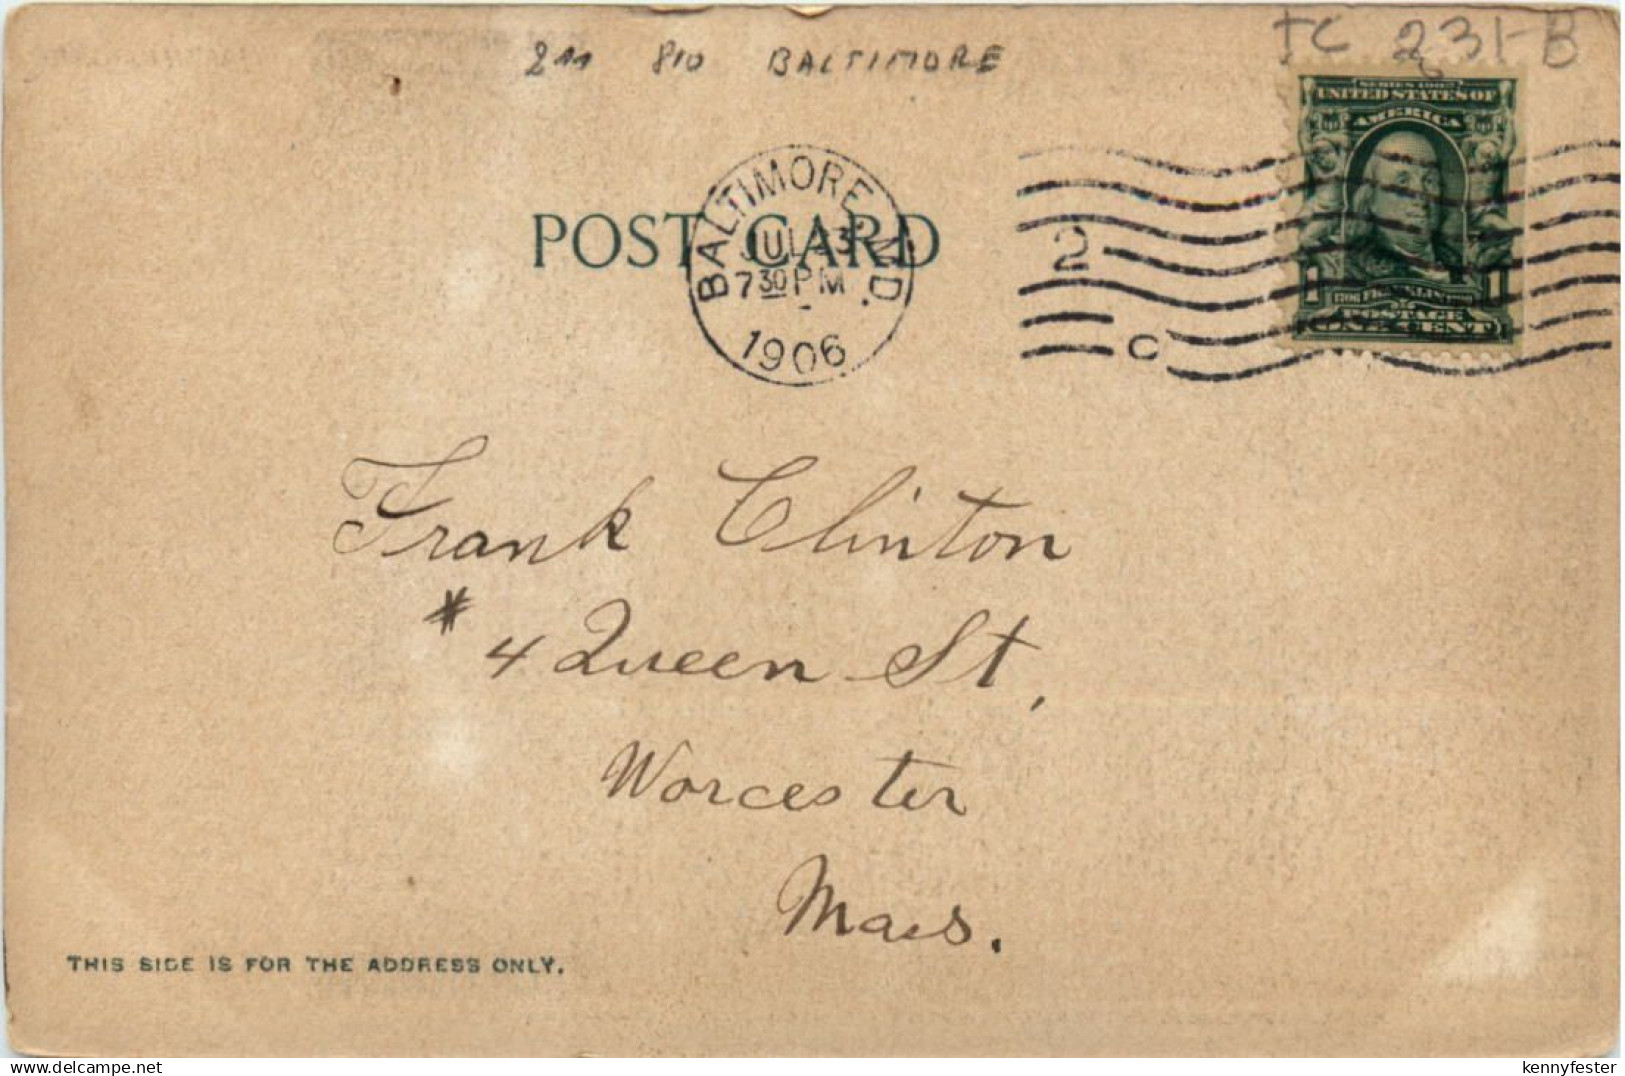 211 810 BALTIMORE
TC 231-B
SERIES 1902
UNITED STATES OF
AMERICA
1 1
FRANKLIN
POSTAGE
ONE CENT
POST CARD
BALTIMORE, MD.
JUL 23
7 30 PM
1906
2
C
Frank Clinton
# 4 Queen St,
Worcester
Mass.
THIS SIDE IS FOR THE ADDRESS ONLY.
delcampe.net
kennyfester